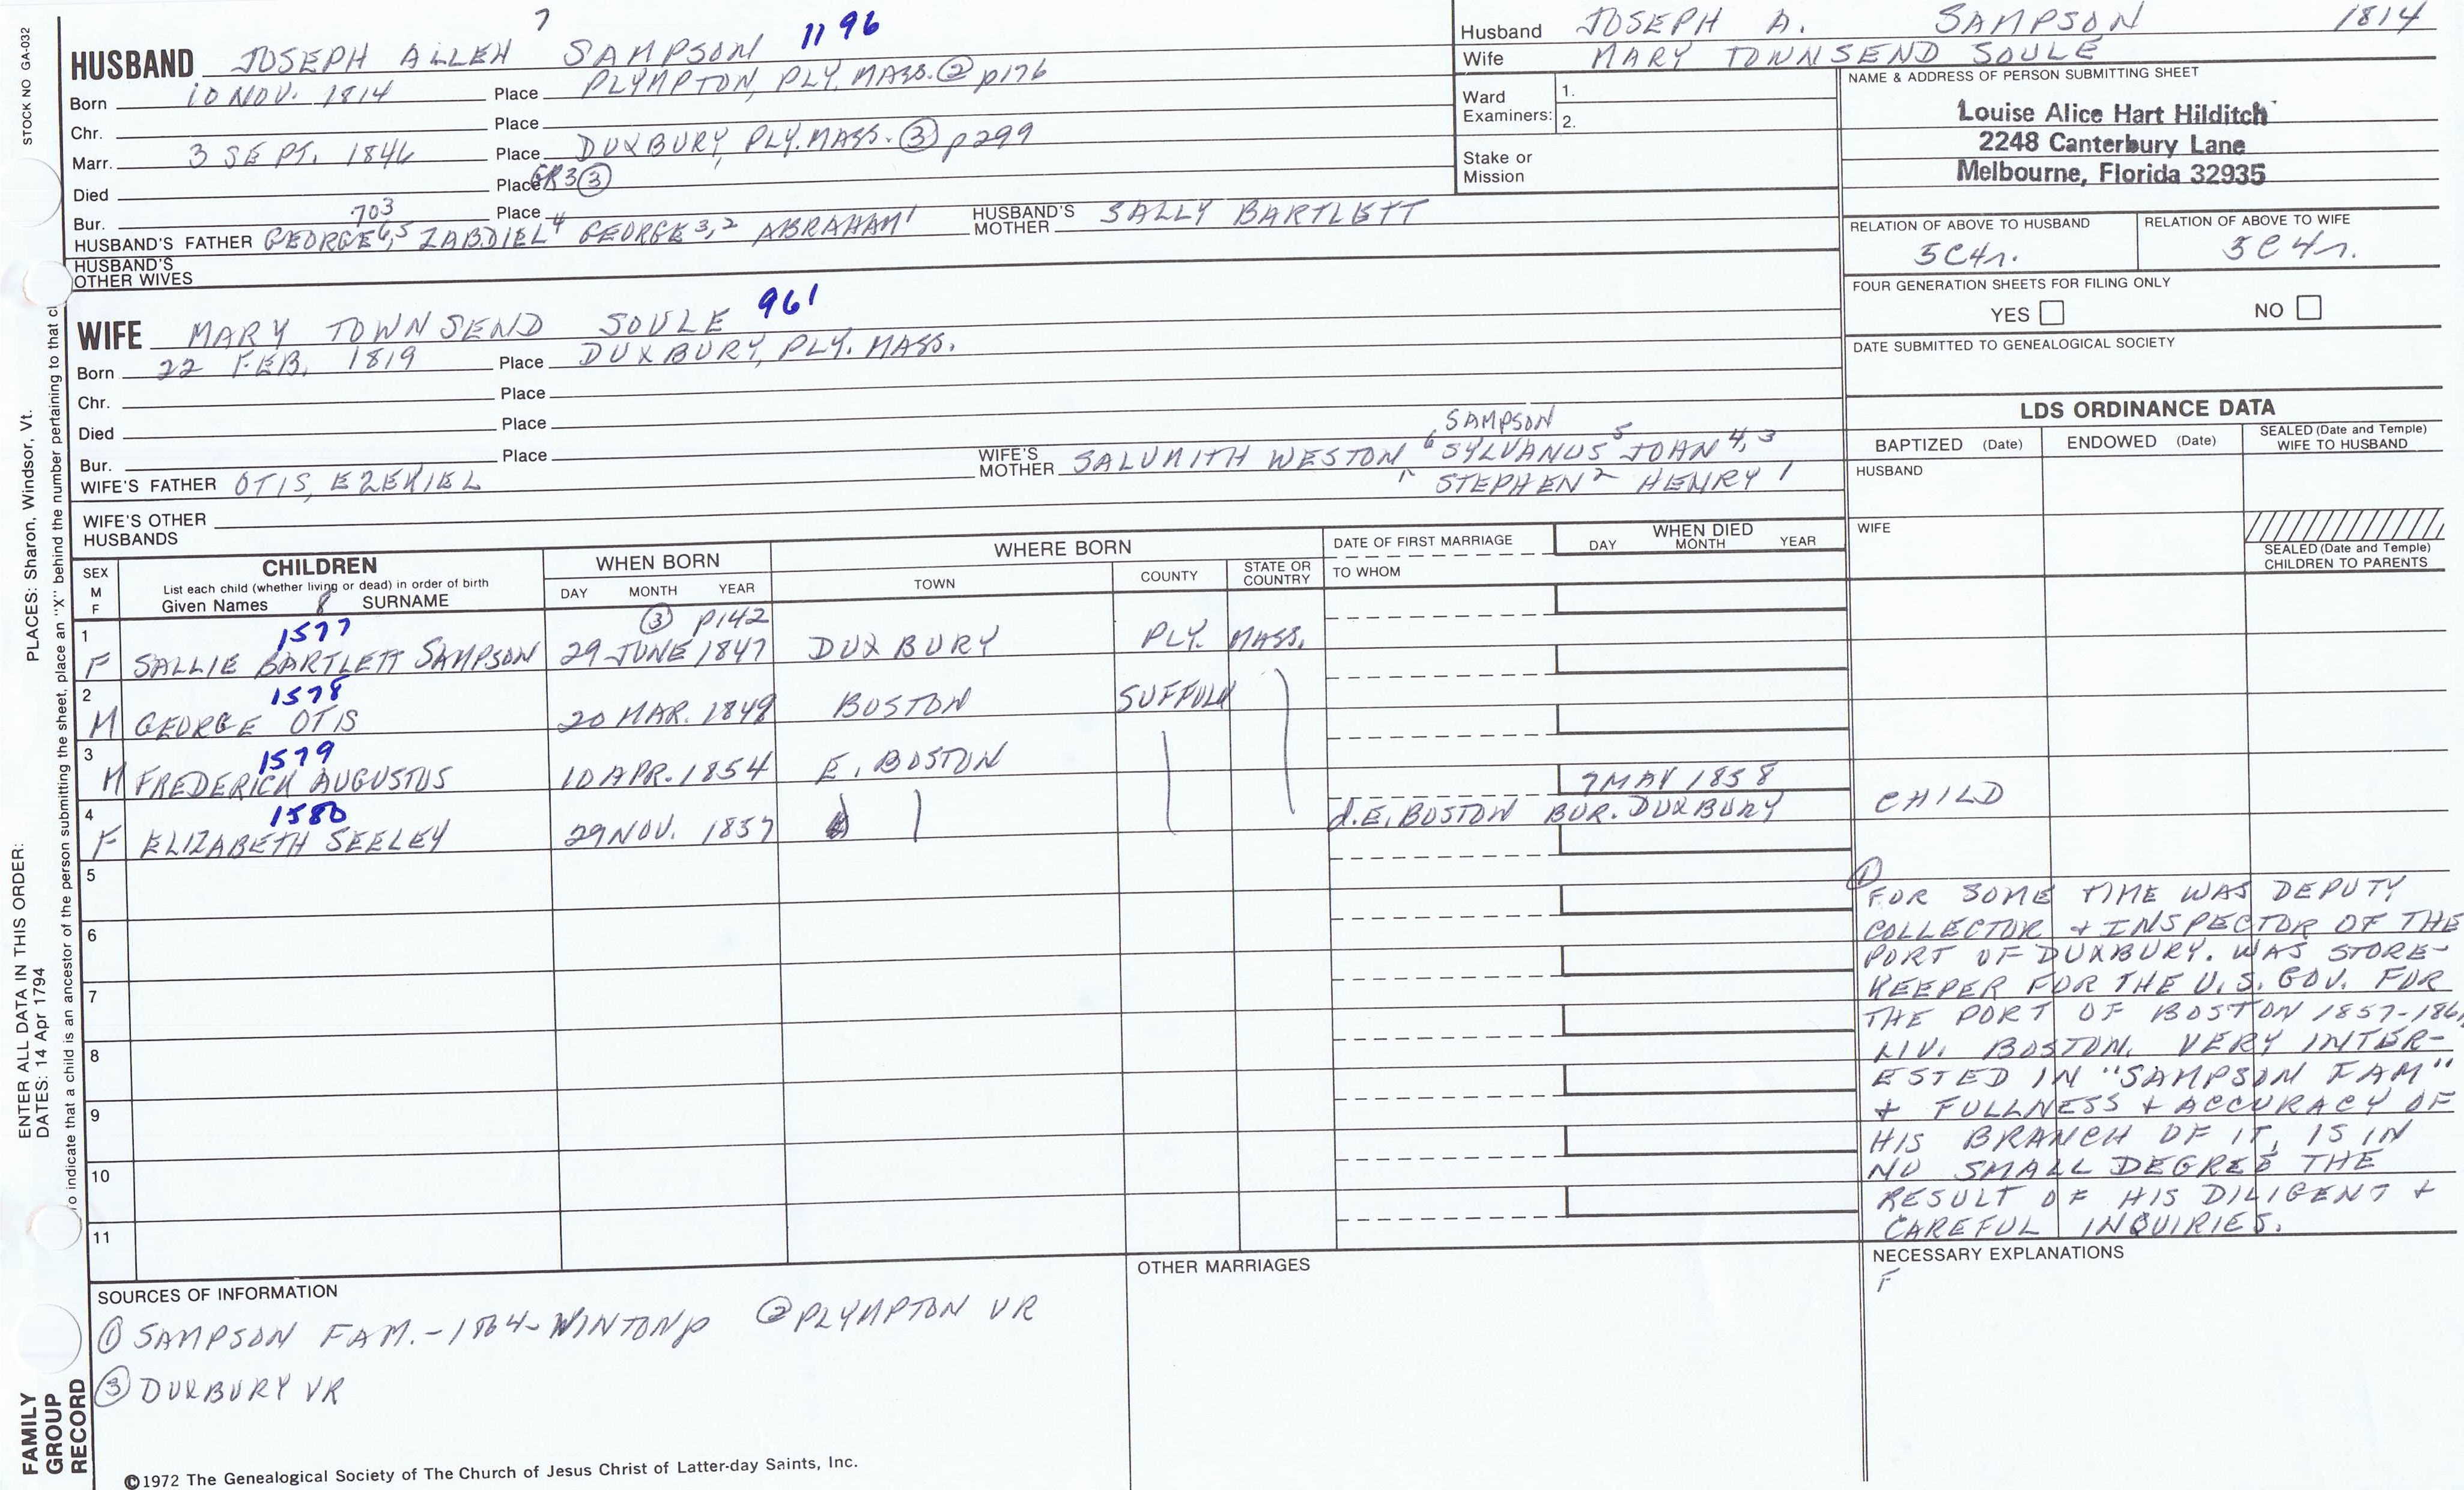 STOCK NO GA-032
PLACES: Sharon, Windsor, Vt.
ENTER ALL DATA IN THIS ORDER:
DATES: 14 Apr 1794
to indicate that a child is an ancestor of the person submitting the sheet, place an "X" behind the number pertaining to that
FAMILY
GROUP
RECORD
7
HUSBAND JOSEPH ALLEN SAMPSON 1196
Born 10 NOV. 1814 Place PLYMPTON, PLY. MASS. ② p176
Chr. Place
Marr. 3 SEPT. 1846 Place DUXBURY, PLY. MASS. ③ p299
Died Place GR3 ③
Bur. Place
703
HUSBAND'S FATHER GEORGE 6,5 ZABDIEL 4 GEORGE 3,2 ABRAHAM 1 HUSBAND'S MOTHER SALLY BARTLETT
HUSBAND'S
OTHER WIVES
WIFE MARY TOWNSEND SOULE 961
Born 22 FEB. 1819 Place DUXBURY, PLY. MASS.
Chr. Place
Died Place
Bur. Place
WIFE'S FATHER OTIS, EZEKIEL WIFE'S MOTHER SALUMITH WESTON
SAMPSON
6 SYLVANUS 5 JOHN 4,3
STEPHEN 2 HENRY 1
WIFE'S OTHER
HUSBANDS
Husband JOSEPH A. SAMPSON 1814
Wife MARY TOWNSEND SOULE
Ward
Examiners:
1.
2.
Stake or
Mission
NAME & ADDRESS OF PERSON SUBMITTING SHEET
Louise Alice Hart Hilditch
2248 Canterbury Lane
Melbourne, Florida 32935
RELATION OF ABOVE TO HUSBAND RELATION OF ABOVE TO WIFE
5C4r. 3C4r.
FOUR GENERATION SHEETS FOR FILING ONLY
YES NO
DATE SUBMITTED TO GENEALOGICAL SOCIETY
LDS ORDINANCE DATA
BAPTIZED (Date) ENDOWED (Date) SEALED (Date and Temple) WIFE TO HUSBAND
HUSBAND
WIFE
SEALED (Date and Temple)
CHILDREN TO PARENTS
SEX
M
F
CHILDREN
List each child (whether living or dead) in order of birth
Given Names 8 SURNAME
WHEN BORN
DAY MONTH YEAR
WHERE BORN
TOWN COUNTY STATE OR COUNTRY
DATE OF FIRST MARRIAGE
TO WHOM
WHEN DIED
DAY MONTH YEAR
③ P142
1 1577
F SALLIE BARTLETT SAMPSON 29 JUNE 1847 DUXBURY PLY. MASS.
2 1578
M GEORGE OTIS 20 MAR. 1849 BOSTON SUFFOLK
3 1579
M FREDERICK AUGUSTUS 10 APR. 1854 E. BOSTON
4 1580 7 MAY 1858
F ELIZABETH SEELEY 29 NOV. 1857 d. E. BOSTON BUR. DUXBURY CHILD
5
6
7
8
9
10
11
①
FOR SOME TIME WAS DEPUTY
COLLECTOR + INSPECTOR OF THE
PORT OF DUXBURY. WAS STORE-
KEEPER FOR THE U.S. GOV. FOR
THE PORT OF BOSTON 1857-186
LIV. BOSTON. VERY INTER-
ESTED IN "SAMPSON FAM"
+ FULLNESS + ACCURACY OF
HIS BRANCH OF IT, IS IN
NO SMALL DEGREE THE
RESULT OF HIS DILIGENT +
CAREFUL INQUIRIES.
SOURCES OF INFORMATION
① SAMPSON FAM. - 1864 - WINTON p ② PLYMPTON VR
③ DUXBURY VR
OTHER MARRIAGES
NECESSARY EXPLANATIONS
F
©1972 The Genealogical Society of The Church of Jesus Christ of Latter-day Saints, Inc.